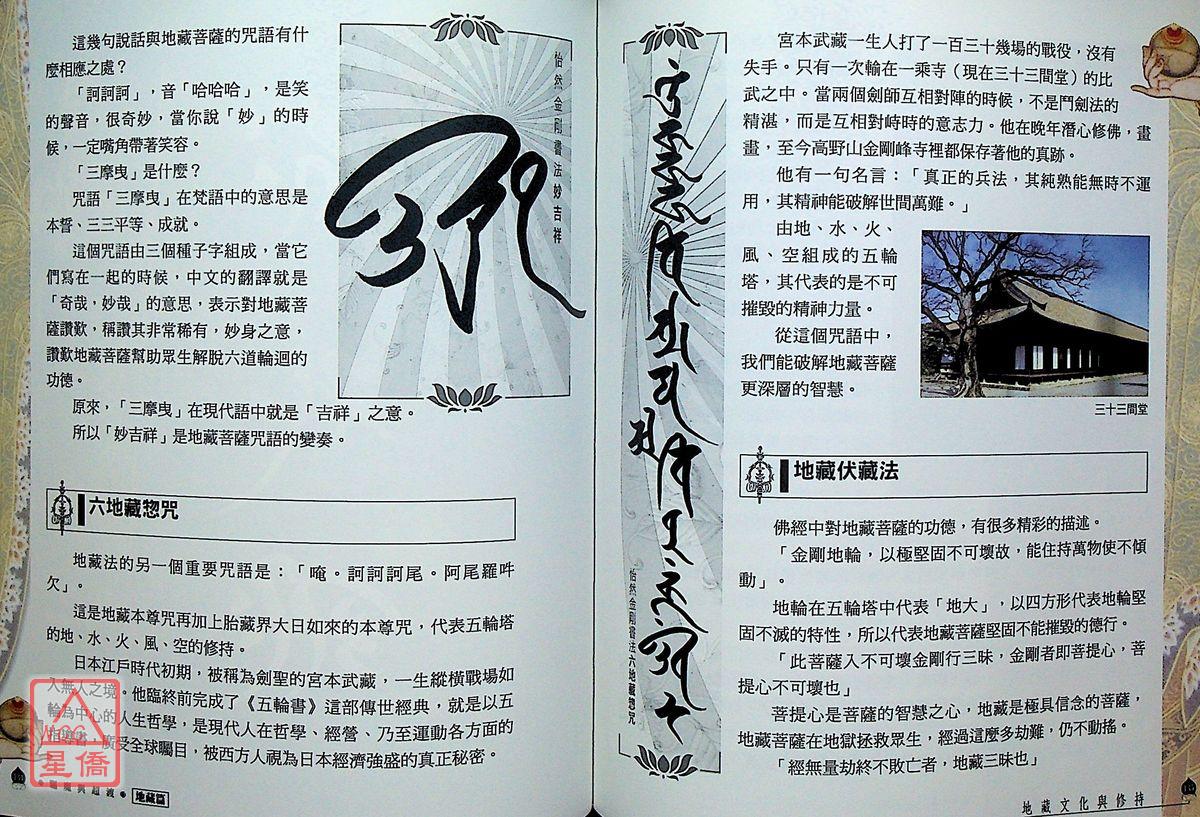 這幾句說話與地藏菩薩的咒語有什
麼相應之處？
「訶訶訶」，音「哈哈哈」，是笑
的聲音，很奇妙，當你說「妙」的時
候，一定嘴角帶著笑容。
「三摩曳」是什麼？
咒語「三摩曳」在梵語中的意思是
本誓、三三平等、成就。
這個咒語由三個種子字組成，當它
們寫在一起的時候，中文的翻譯就是
「奇哉，妙哉」的意思，表示對地藏菩
薩讚歎，稱讚其非常稀有，妙身之意，
讚歎地藏菩薩幫助眾生解脫六道輪迴的
功德。
原來，「三摩曳」在現代語中就是「吉祥」之意。
所以「妙吉祥」是地藏菩薩咒語的變奏。
怡然金剛書法妙吉祥
六地藏惣咒
地藏法的另一個重要咒語是：「唵。訶訶訶尾。阿尾羅吽
欠」。
這是地藏本尊咒再加上胎藏界大日如來的本尊咒，代表五輪塔
的地、水、火、風、空的修持。
日本江戶時代初期，被稱為劍聖的宮本武藏，一生縱橫戰場如
入無人之境。他臨終前完成了《五輪書》這部傳世經典，就是以五
輪為中心的人生哲學，是現代人在哲學、經營、乃至運動各方面的
受全球矚目，被西方人視為日本經濟強盛的真正秘密。
星僑
地藏篇
怡然金剛書法六地藏惣咒
宮本武藏一生人打了一百三十幾場的戰役，沒有
失手。只有一次輸在一乘寺（現在三十三間堂）的比
武之中。當兩個劍師互相對陣的時候，不是鬥劍法的
精湛，而是互相對峙時的意志力。他在晚年潛心修佛，畫
畫，至今高野山金剛峰寺裡都保存著他的真跡。
他有一句名言：「真正的兵法，其純熟能無時不運
用，其精神能破解世間萬難。」
由地、水、火、
風、空組成的五輪
塔，其代表的是不可
摧毀的精神力量。
從這個咒語中，
我們能破解地藏菩薩
更深層的智慧。
三十三間堂
地藏伏藏法
佛經中對地藏菩薩的功德，有很多精彩的描述。
「金剛地輪，以極堅固不可壞故，能住持萬物使不傾
動」。
地輪在五輪塔中代表「地大」，以四方形代表地輪堅
固不滅的特性，所以代表地藏菩薩堅固不能摧毀的德行。
「此菩薩入不可壞金剛行三昧，金剛者即菩提心，菩
提心不可壞也」
菩提心是菩薩的智慧之心，地藏是極具信念的菩薩，
地藏菩薩在地獄拯救眾生，經過這麼多劫難，仍不動搖。
「經無量劫終不敗亡者，地藏三昧也」
地藏文化與修持